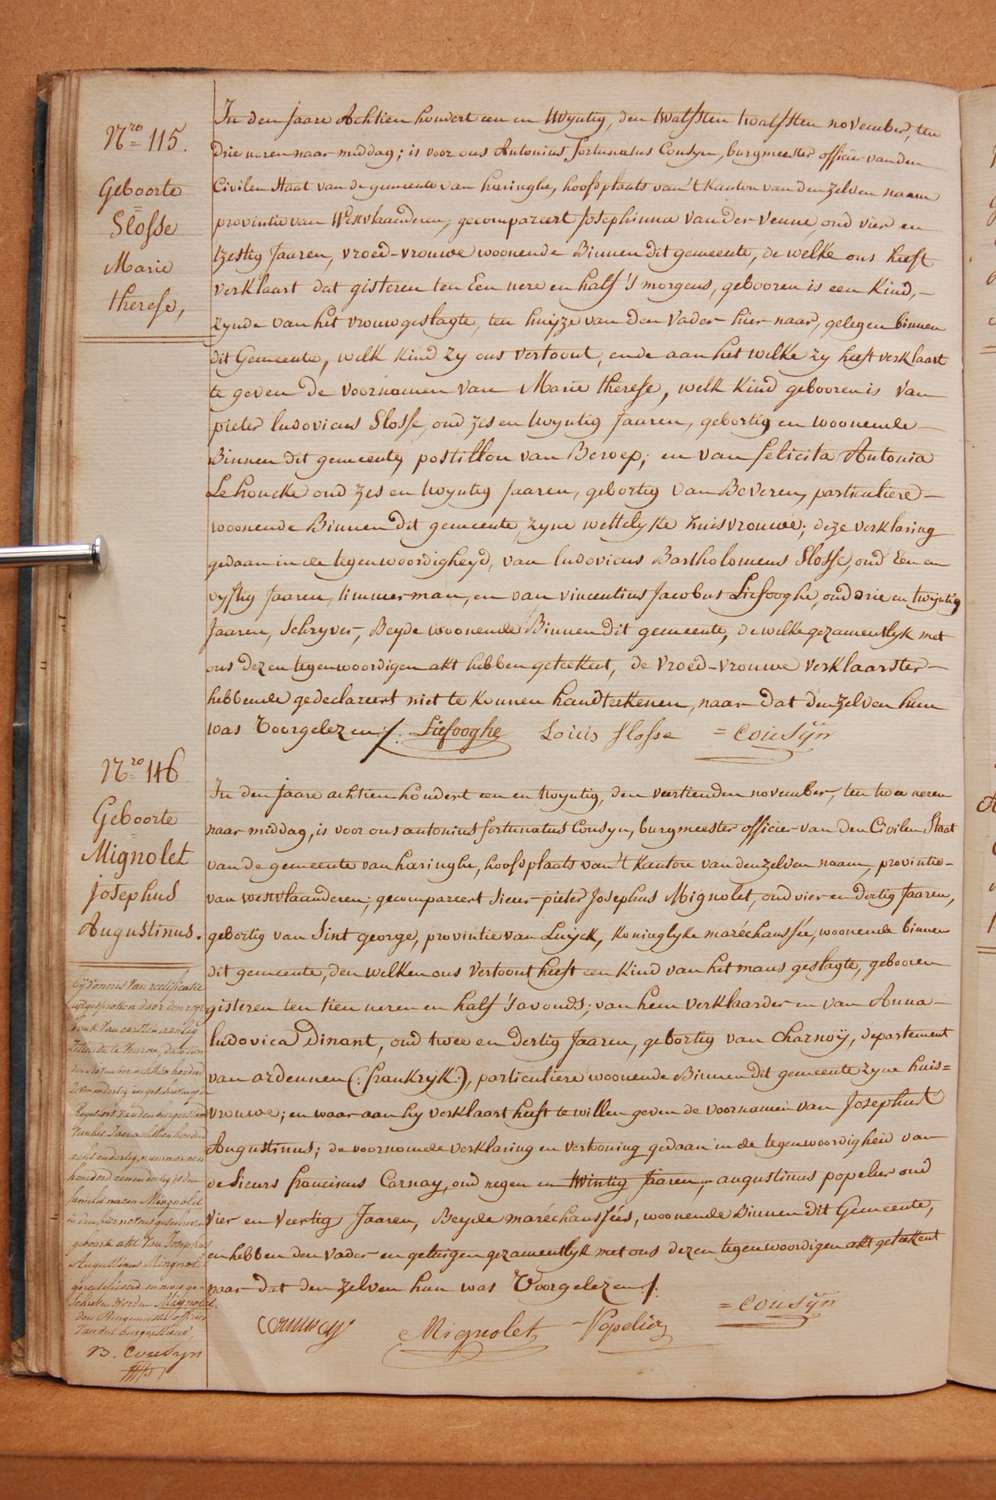 Nro 115.
Geboorte
Slosse
Marie
therese,
In den jaare Achtien hondert een en twyntig, den twalfsten november, ten
drie ueren naar middag; is voor ons Antonius fortunatus Cousyn, burgmeester officier van den
Civilen Staat van de gemeente van haringhe, hoofdplaats van 't Kanton van den zelven naam
provintie van Westvlaanderen, gecompareert Josephinna Van der Venne oud vier en
tzestig Jaaren, vroed-vrouwe woonende Binnen dit gemeente, de welke ons heeft
verklaart dat gisteren ten Een uere en half 's morgens, gebooren is een Kind,
zynde van het vrouwgeslagte, ten huyze van den Vader hier naar, gelegen binnen
dit Gemeente, welk kind zy ons vertoont, ende aan het welke zy heeft verklaart
te geven de voornamen van Marie therese, welk Kind gebooren is Van
pieter ludovicus Slosse, oud zes en twyntig Jaaren, gebortig en woonende
Binnen dit gemeente postillon van Beroep; en van felicita Antonia
Lehoucke oud zes en twyntig Jaaren, gebortig van Beveren, particuliere
woonende Binnen dit gemeente, zyne wettelyke huisvrouwe; deze verklaring
gedaan in de tegenwoordigheyd, van ludovicus Bartholomeus Slosse, oud Een en
vyftig Jaaren, timmerman, en van vincentius Jacobus Liefooghe, oud drie en twyntig
Jaaren, Schryver, Beyde woonende Binnen dit gemeente, de welke gezamentlyk met
ons dezen tegenwoordigen akt hebben geteekent, de vroed-vrouwe verklaarster
hebbende gedeclareert niet te konnen handtekenen, naar dat den zelven hun
was Voorgelezen /. Liefooghe Louis Slosse = Cousÿn
Nro 116
Geboorte
Mignolet
Josephus
Augustinus.
In den jaare achtien hondert een en twyntig, den veertienden november, ten twee ueren
naar middag, is voor ons antonius fortunatus Cousyn, burgmeester officier van den Civilen Staat
van de gemeente van haringhe, hoofdplaats van 't Kanton van den zelven naam, provintie
van westvlaanderen, gecompareert Sieur pieter Josephus Mignolet, oud vier en dertig Jaaren,
gebortig van Sint george, provintie van Luyck, Koninglyke maréchaussée, woonende binnen
dit gemeente, den welken ons Vertoont heeft een kind van het mans geslagte, gebooren
gisteren ten tien ueren en half 's avonds, van hem verklaarder en van Anna
ludovica Dinant, oud twee en dertig Jaaren, gebortig van Charnoÿ, departement
van ardennen (: frankryk:), particuliere woonende Binnen dit gemeente zyne huis=
vrouwe; en waar aan hy verklaart heeft te willen geven de voornamen van Josephus
Augustinus; de voornoemde verklaring en vertooning gedaan in de tegenwoordigheid van
de Sieurs franciscus Cornay, oud negen en twintig Jaaren, augustinus popelier oud
vier en veertig Jaaren, Beyde maréchaussées, woonende Binnen dit Gemeente,
en hebben den Vader en getuigen gezamentlyk met ons dezen tegenwoordigen akt geteekent
naar dat den zelven hun was Voorgelezen /.
Mignolet Popelier = Cousÿn
honderd
Augustinus
B. Cousyn